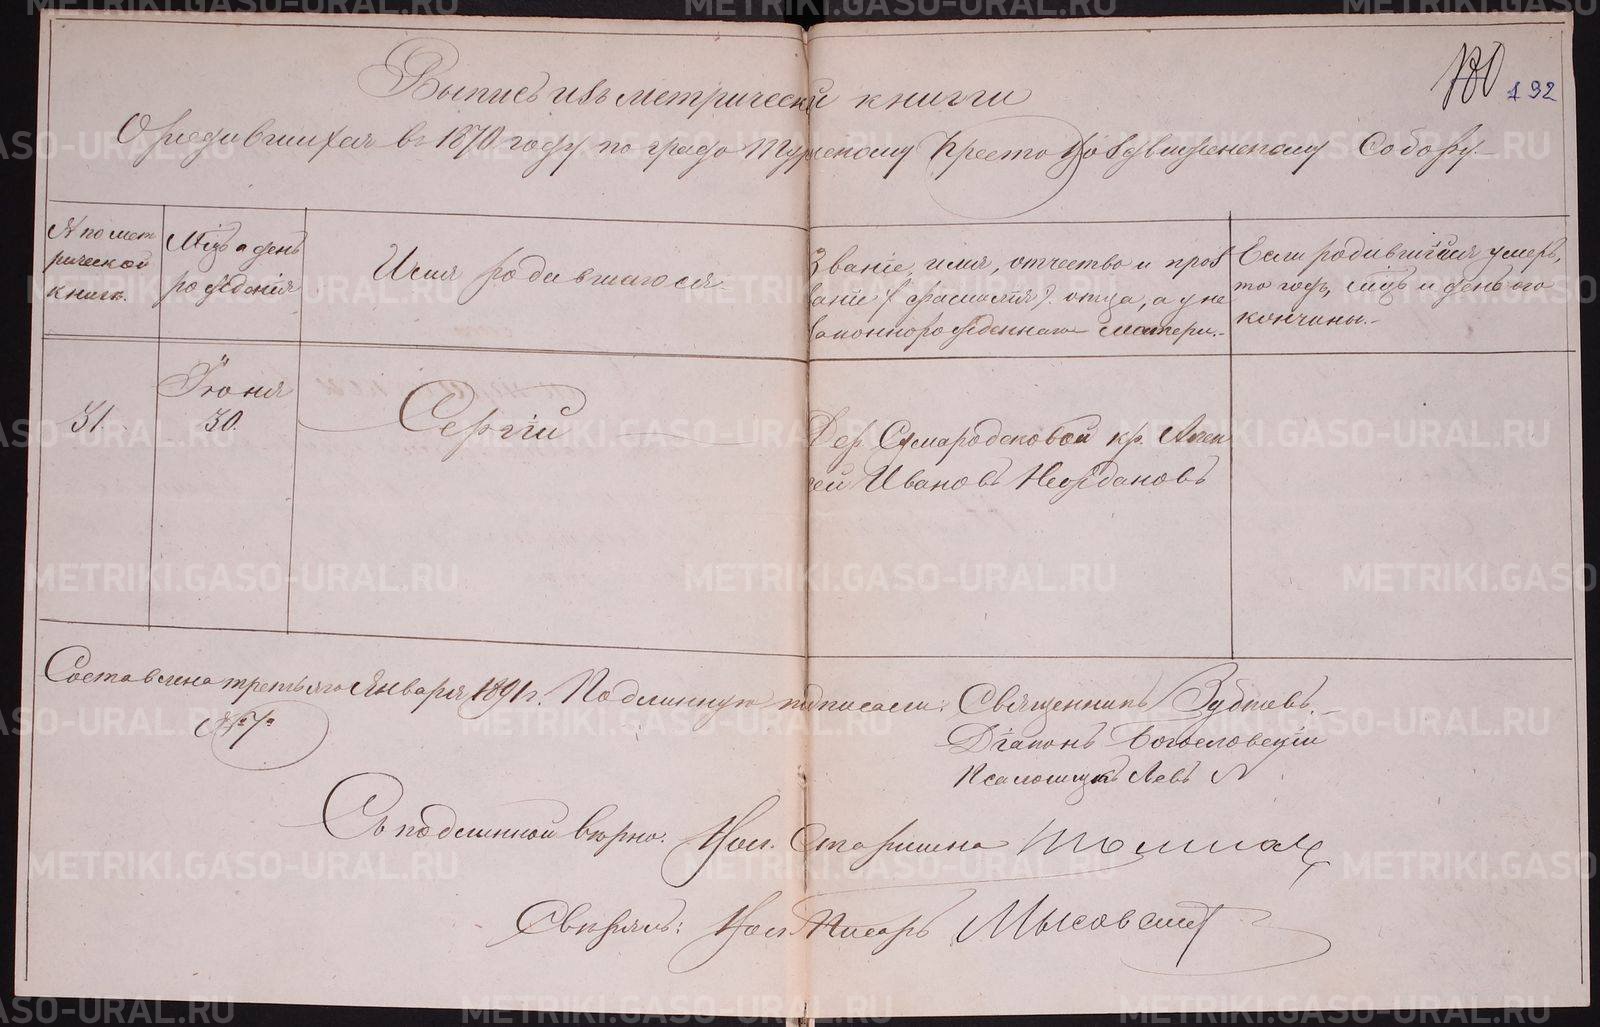 180 192
Выпись изъ метрической книги
О родившихся въ 1870 году по градо Туринскому Кресто Воздвиженскому Собору.
№ по мет
рической
книгѣ.
Мцъ и день
рожденія
Имя родившагося
Званіе, имя, отчество и проз
ваніе (фамилія). отца, а у не
законнорожденнаго матери.
Если родившійся умеръ,
то годъ, мцъ и день его
кончины.
31.
Іюня
30.
Сергій
Дер. Сумародсковой кр. Алек
сей Ивановъ
Составлена третьяго Января 1891 г. Подлинную подписали: Священникъ Зубковъ.
№ 7.
Діаконъ Богословскій
Псаломщикъ Левъ
Съ подлинной вѣрно: Вол. Старшина
Свѣрялъ: Вол. Писарь
METRIKI.GASO-URAL.RU